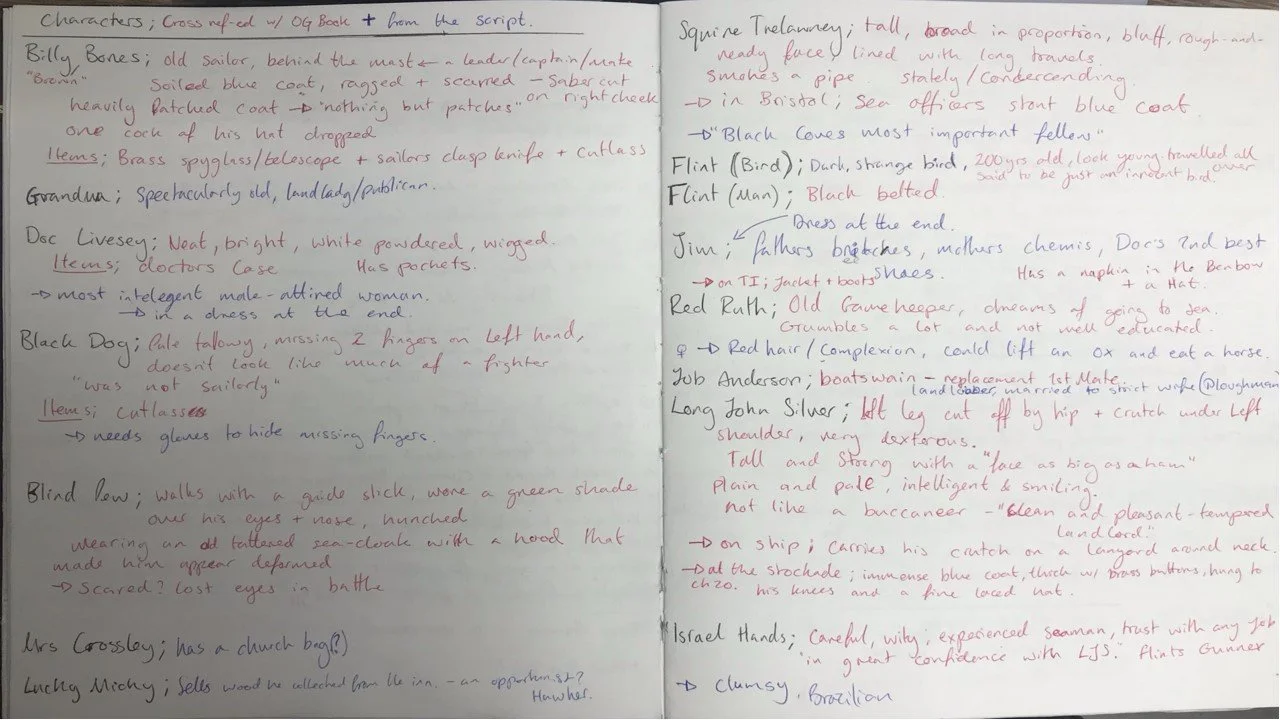 Characters; Cross ref-ed w/ OG Book + from the script.
Billy Bones; old sailor, behind the mast ← a leader/captain/mate
"Brown" Soiled blue coat, ragged + scarred - Saber cut on right cheek
heavily Patched coat → "nothing but patches"
one cock of his hat dropped
Items; Brass spyglass/telescope + sailors clasp knife + cutlass
Grandma; Spectacularly old, landlady/publican.
Doc Livesey; Neat, bright, white powdered, wigged.
Items; doctors Case Has pockets.
→ most intelegent male-attired woman.
→ in a dress at the end.
Black Dog; Pale tallowy, missing 2 fingers on Left hand,
doesn't look like much of a fighter
"was not sailorly"
Items; cutlass
→ needs gloves to hide missing fingers.
Blind Pew; walks with a guide stick, wore a green shade
over his eyes + nose, hunched
wearing an old tattered sea-cloak with a hood that
made him appear deformed
→ Scared? lost eyes in battle
Mrs Crossley; has a church bag(?)
Lucky Micky; Sells wood he collected from the inn. - an opportunist?
Hawker.
Squire Trelawney; tall, broad in proportion, bluff, rough-and-
ready face, lined with long travels.
Smokes a pipe. stately/condercending.
→ in Bristol; Sea officers stont blue coat.
→ "Black Coves most important fellow"
Flint (Bird); Dark, strange bird, 200yrs old, look young, travelled all over
said to be just an innocent bird.
Flint (Man); Black belted.
Dress at the end.
Jim; fathers britches, mothers chemis, Doc's 2nd best
shoes.
→ on TI; Jacket + boots
Has a napkin in the Benbow
+ a Hat.
Red Ruth; Old Gamekeeper, dreams of going to sea.
Grumbles a lot and not well educated.
♀ → Red hair/Complexion, could lift an ox and eat a horse.
Job Anderson; boatswain - replacement 1st Mate.
landlobber, married to strict wife
Long John Silver; left leg cut off by hip + crutch under Left
shoulder, very dexterous.
Tall and Strong with a "face as big as a ham"
plain and pale, intelligent & smiling.
not like a buccaneer - "clean and pleasant-tempered
landlord."
→ on ship; carries his crutch on a lanyard around neck.
→ at the stockade; immense blue coat, thick w/ brass buttons, hung to
ch20. his knees and a fine laced hat.
Israel Hands; Careful, wily, experienced seaman, trust with any job
"in great confidence with LJS." Flints Gunner
→ Clumsy, Brazilian